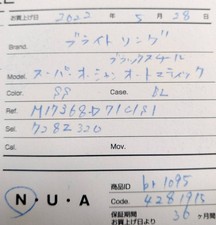 お買上げ日 2022 年 5 月 28 日
Brand. ブライトリング
ブラックスチール
Model. スーパーオーシャン オートマティック
Color. SS Case. BL
Ref. M17368D71C1S1
Sel. 7282320
Cal. Mov.
商品ID br1095
N・U・A Code. 4281915
保証期間 お買上げ日より 36 ヶ月間